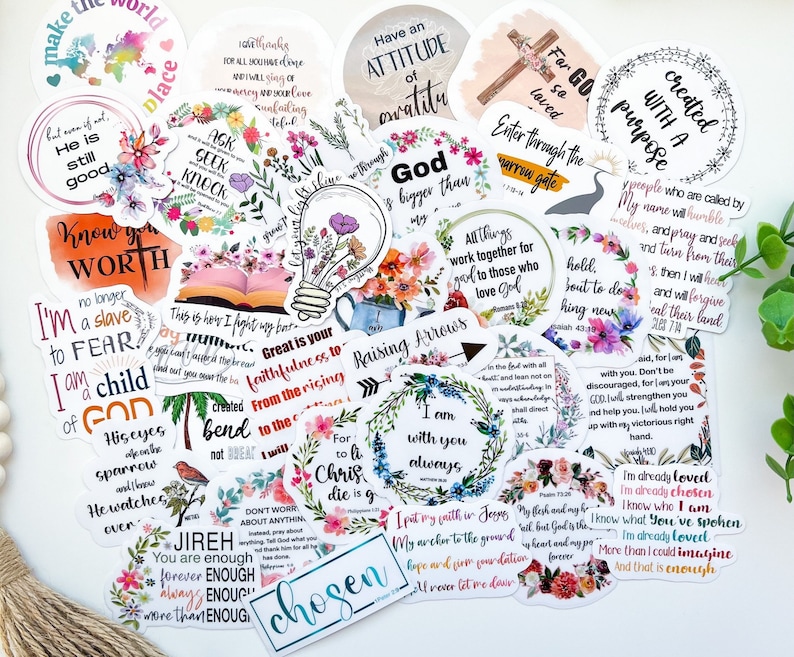 make the world
place
I GIVE thanks
FOR ALL YOU HAVE DONE
AND I WILL sing OF
YOUR mercy AND YOUR love
unfailing
Have an
ATTITUDE
of
gratitu
For GO
so
loved
created
WITH A
purpose
but even if not,
He is
still
good.
ASK
and it will be given to you
SEEK
and you will find
KNOCK
and it will be opened to you
Matthew 7:7
through
God
is bigger than
my
Enter through the
narrow gate
7:13-14
my people who are called by
My name will humble
themselves, and pray and seek
and turn from their
then I will hear
and will forgive
heal their land.
7:14
Know you
WORTH
let your light shine
This is how I fight my ba
All things
work together for
good to those who
love God
Romans 8:2
hold,
about to do
thing new.
Isaiah 43:19
I'M a
no longer
slave
to FEAR,
I AM a
child
of GOD
humbl
you can't afford the bread
and out you own the ba
created
bend
not BREAK
Great is your
faithfulness to
From the rising
to the
I will
Raising Arrows
in the Lord with all
heart, and lean not on
understanding. In
ways acknowledge
shall direct
paths.
:5-6
said, for I am
with you. Don't be
discouraged, for I am your
GOD. I will strengthen you
and help you. I will hold you
up with my victorious right
hand.
Isaiah 41:10
His eyes
are on the
sparrow
and I know
He watches
over
For
to li
Chris
die is g
Philippians 1:21
I am
with you
always
MATTHEW 28:20
DON'T WORR
ABOUT ANYTHIN
instead, pray about
everything. Tell God what you
and thank him for all
he has done.
JIREH
You are enough
forever ENOUGH
always ENOUGH
more than ENOUGH
chosen
1 Peter 2:9
I put my faith in Jesus
My anchor to the ground
hope and firm foundation
He'll never let me down
Psalm 73:26
My flesh and my hea
fail, but God is the
my heart and my por
forever
I'm already loved
I'm already chosen
I know who I am
I know what You've spoken
I'm already loved
More than I could imagine
And that is enough